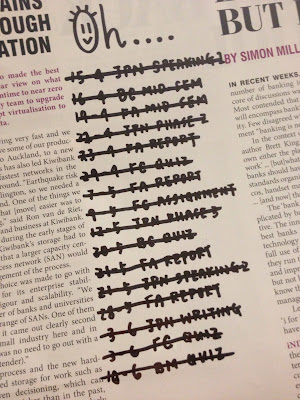 AINS
OUGH
ATION
Oh....
BUT
BY SIMON MILL
15 4 JPN SPEAKING 2
16 4 BC MID SEM
19 4 FA MID SEM
23 4 JPN PHASE 2
23 4 FA REPORT
29 4 FC QUIZ
7 5 FA REPORT
9 5 FC ASSIGNMENT
12 5 JPN PHASE 3
20 5 BC QUIZ
21 5 FA REPORT
21 5 JPN SPEAKING 2
28 5 FA REPORT
3 6 JPN WRITING
3 6 FC QUIZ
10 6 BM QUIZ
so made the best
ear view on what
ntime to near zero
y team to upgrade
pt virtualisation to
ta.
ring very fast and we
w some of our produc-
o Auckland, to a new
s has also led Kiwibank
ormest networks in the
ound. "Earthquake risk
ellington, so we needed a
nd. One of the things we
that [move] easier was to
e," said Ron van de Riet,
and business at Kiwibank.
during the early stages of
Kiwibank's storage had to
that a larger capacity cen-
ccess network (SAN) would
gement of the process.
choice was made to go with
for its enterprise stabil-
vigour and scalability. "We
er of banks and universities
range of SANs. One of them
it came out clearly second
small industry here and in
was no need to go out with a
tender)."
process and the new hard-
zed storage for work such as
en decisioning, which can
IN RECENT WEEKS
number of banking
core of discussion
Most contended that
will encompass
ty. Few disagreed
ment "banking is
In the context
author Brett King
own either the
work
banks should